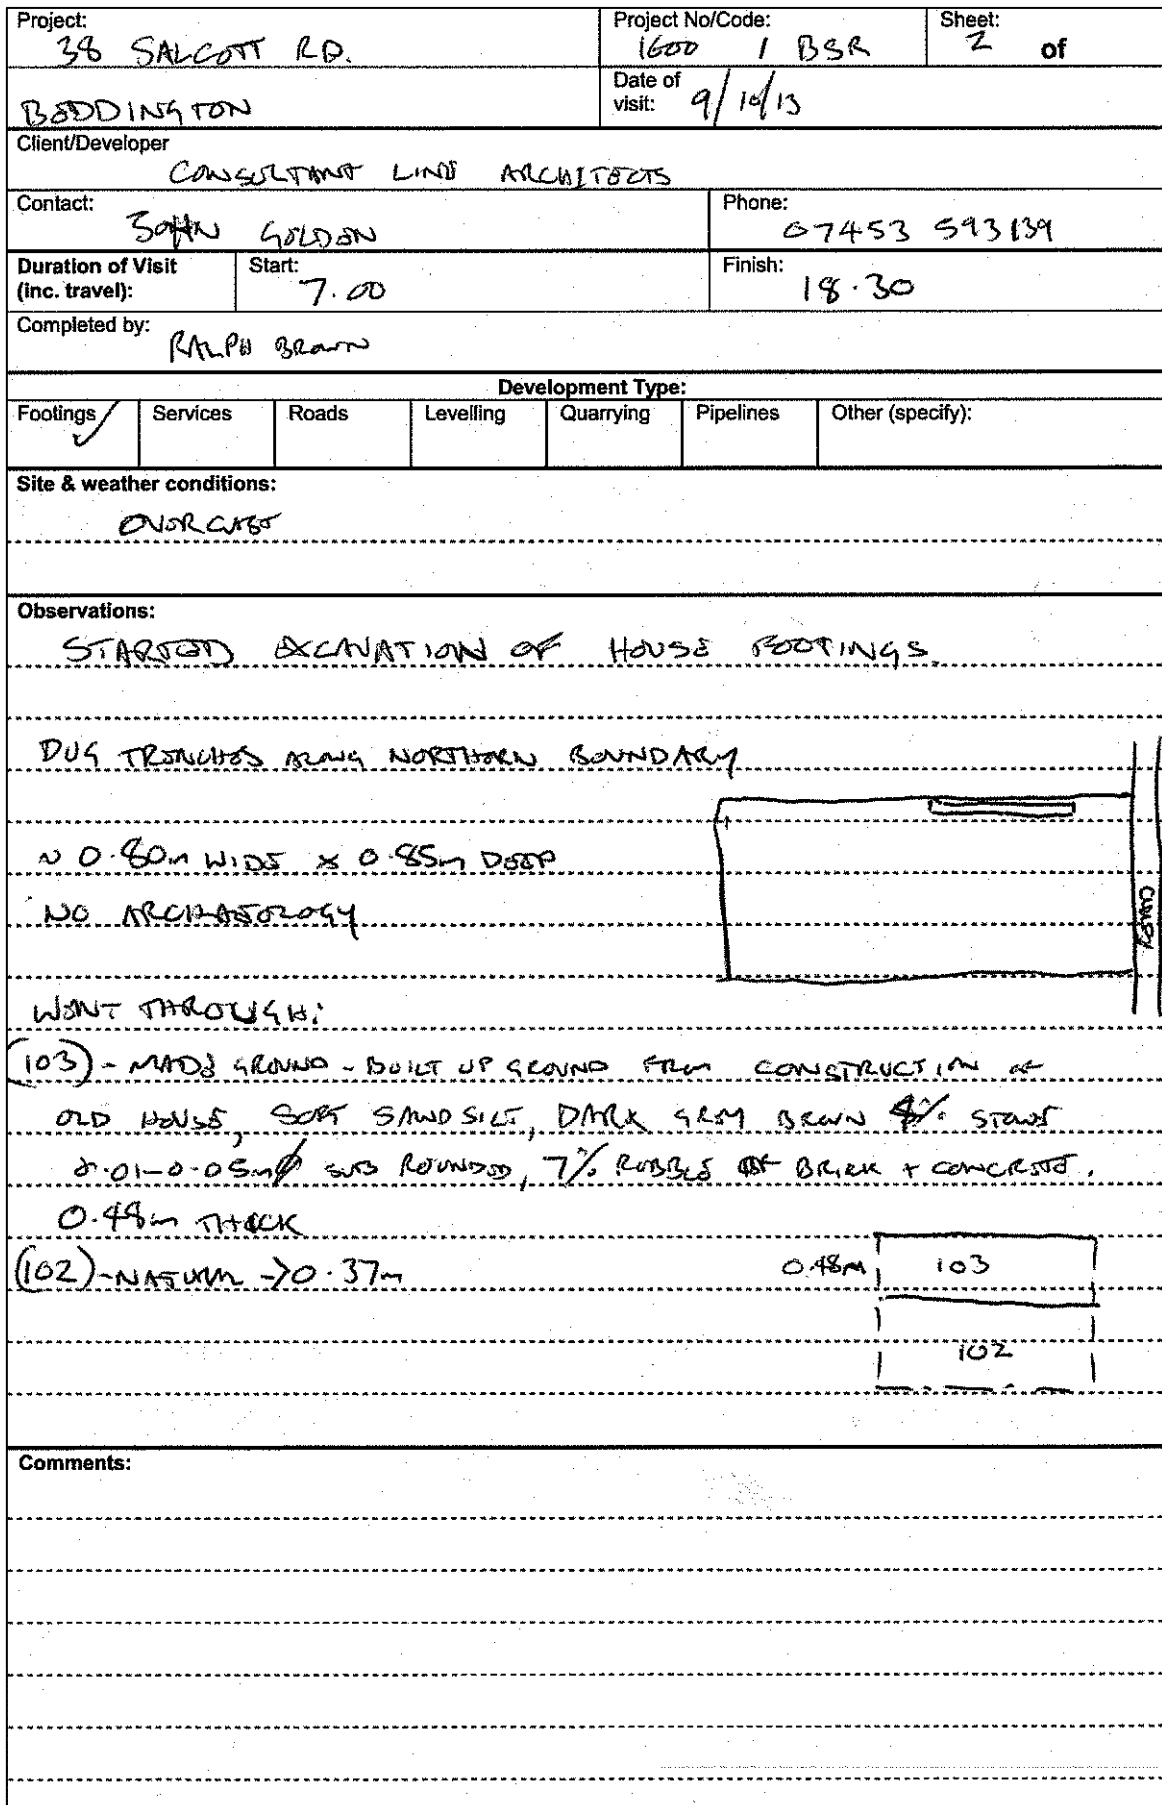 Project: Project No/Code: Sheet:
38 SALCOTT RD. 1600 / BSR 2 of
BEDDINGTON Date of visit: 9/10/13
Client/Developer
CONSULTANT LINE ARCHITECTS
Contact: Phone:
JOHN GOLDEN 07453 593139
Duration of Visit (inc. travel): Start: 7.00 Finish: 18.30
Completed by: RALPH BROWN
Development Type:
Footings ✓ Services Roads Levelling Quarrying Pipelines Other (specify):
Site & weather conditions:
OVERCAST
Observations:
STARTED EXCAVATION OF HOUSE FOOTINGS.
DUG TRENCHES ALONG NORTHERN BOUNDARY
~ 0.80m WIDE x 0.85m DEEP
NO ARCHAEOLOGY
WENT THROUGH:
(103) - MADE GROUND - BUILT UP GROUND FROM CONSTRUCTION OF
OLD HOUSE, SOFT SAND SILT, DARK GREY BROWN % STONE
0.01-0.05mø SUB ROUNDED, 7% RUBBLE OF BRICK + CONCRETE.
0.48m THICK
(102) - NATURAL -> 0.37m
0.48m 103
102
Comments: